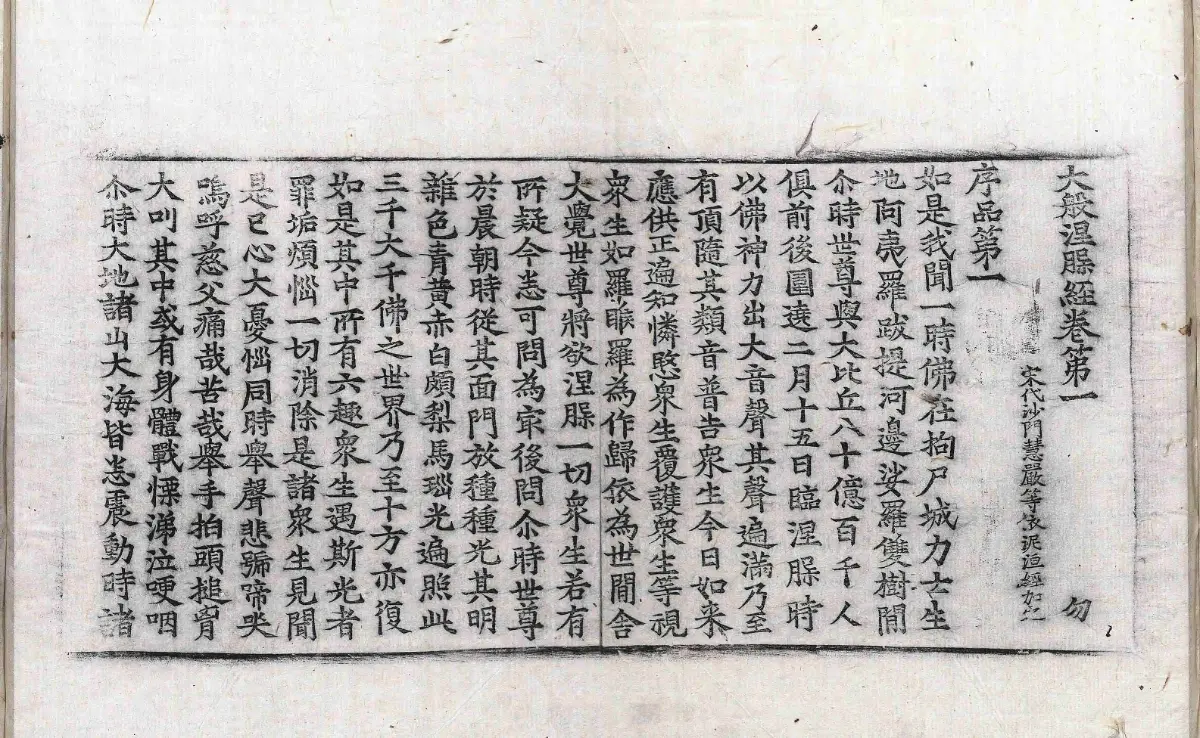 大般涅脲經卷第一 勿
宋代沙門慧嚴等依泥洹經加之
序品第一
如是我聞一時佛在拘尸城力士生
地阿夷羅跋提河邊娑羅雙樹閒
尒時世尊與大比丘八十億百千人
俱前後圍遶二月十五日臨涅脲時
以佛神力出大音聲其聲遍滿乃至
有頂隨其類音普告衆生今日如來
應供正遍知憐愍衆生覆護衆生等視
衆生如羅睺羅為作歸依為世閒舍
大覺世尊將欲涅脲一切衆生若有
所疑今悉可問為冣後問尒時世尊
於晨朝時從其面門放種種光其明
雜色青黃赤白頗梨馬瑙光遍照此
三千大千佛之世界乃至十方亦復
如是其中所有六趣衆生遇斯光者
罪垢煩惱一切消除是諸衆生見聞
是已心大憂惱同時舉聲悲號啼哭
嗚呼慈父痛哉苦哉舉手拍頭搥胷
大叫其中或有身體戰慄涕泣哽咽
尒時大地諸山大海皆悉震動時諸